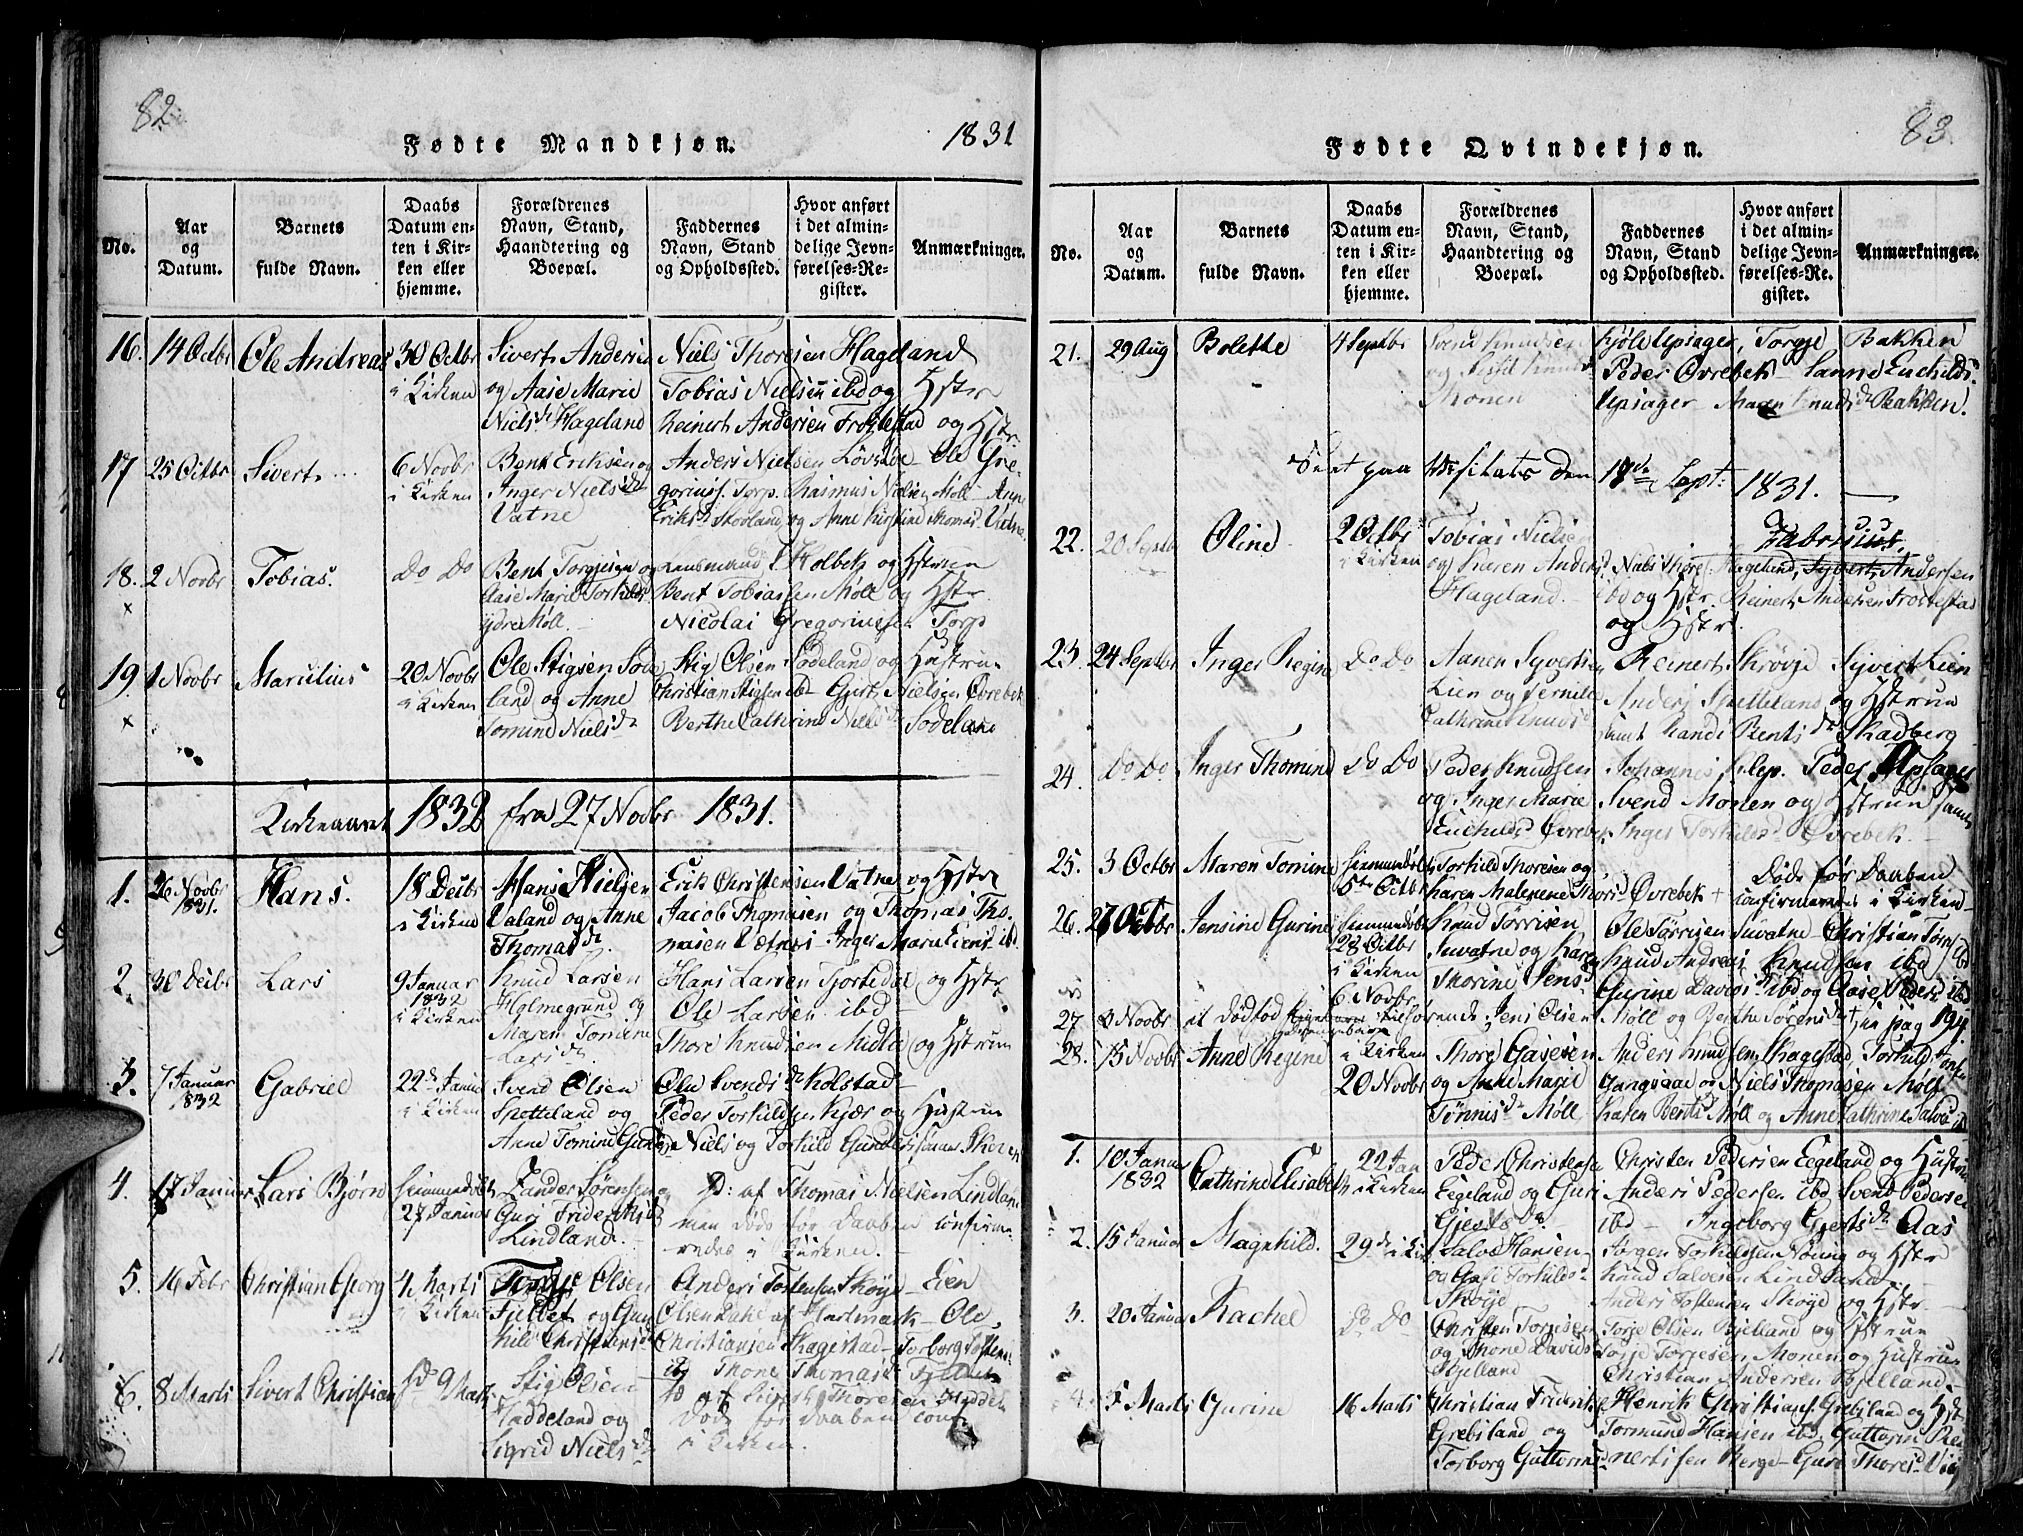 82.
Fødte Mandkjøn.
1831
No.
Aar
og
Datum.
Barnets
fulde Navn.
Daabs
Datum en-
ten i Kir-
ken eller
hjemme.
Forældrenes
Navn, Stand,
Haandtering og
Boepæl.
Faddernes
Navn, Stand
og Opholdssted.
Hvor anført
i det almin-
delige Jevn-
førelses-Re-
gister.
Anmærkninger.
16. 14 Octbr Ole Andreas 30 Octbr
i Kirken
Sivert Andersen
og Aase Marie
Niels d. Hageland
Niels Thoresen Hageland
Tobias Nielsen ibd og Hstr
Reinert Andersen Frostestad og Hstr.
17 25 Octbr Sivert 6 Novbr
i Kirken
Bent Eriksen og
Inger Niels d.
Vatne
Anders Nielsen Løvsøe - Ole Gre-
goriusf. Torp. Rasmus Nielsen Møll - Anne
Eriks d. Stovland og Anne Kirstine Thomas. Vatne.
18. 2 Novbr Tobias. Do Do
Bent Torgjesen og
Aase Marie Torkilds
ydre Møll.
Lensmand Holbek og Hstruen
Bent Tobiassen Møll og Hstr.
Nicolai Gregoriusf. Torp
19 1 Novbr Marulius 20 Novbr
i Kirken
Ole Stigsen Sode
land og Anne
Tomine Niels d.
Stig Olsen Sødeland og Hustrue
Christian Stigsen ibd - Gjert Nielsen Øvrebek
Berthe Cathrine Niels d. Sodeland
Kirkeaaret 1832 fra 27 Novbr 1831.
1. 26 Novbr
1831. Hans. 18 Decbr
i Kirken
Hans Nielsen
Valand og Anne
Thomas d.
Erik Christensen Vatne og Hstr
Jacob Thomasen og Thomas Tho-
masen Vatnes - Inger Maruliens. ib.
2. 30 Decbr Lars 9 Januar
1832
i Kirken
Knud Larsen
Holmegrund og
Maren Tomine
Lars d.
Hans Larsen Tjostedal og Hstr
Ole Larsen ibd
Thore Knudsen Midbø og Hstrun
3. 7 Januar
1832 Gabriel 22 d. Januar
i Kirken
Svend Olsen
Spetteland og
Anne Tomine Gund
Ole Svends. Kolstad
Peder Torkildsen Kjær og Hustrue
Niels og Torkild Gundersønner Skeren
4. 17 Januar Lars Bjørn Hjemmedøbt
27 Januar
Zander Sørensen og
Guri Frideriks d.
Lindland.
D: af Thomas Nielsen Lindland
men døde før Daaben confirme-
redes i Kirken.
5. 16 Febr Christian Georg 4 Marts
i Kirken
Torje Olsen
Fjellet og Gun
hild Christens d.
Anders Tostensen Skøje - Eien
Olsen Dahl af Hartmark - Ole
Christiansen Hagestad - Torborg Tostens
ib Thone Thomas d. Fjellet
6. 8 Marts Sivert Christian 9 Marts
Stig Olsen
Haddeland og
Sigrid Niels d.
D af Sivert Thoresen Haddel.
Døde før Daaben conf
i Kirken.
83.
Fødte Qvindekjøn.
No.
Aar
og
Datum.
Barnets
fulde Navn.
Daabs
Datum en-
ten i Kir-
ken eller
hjemme.
Forældrenes
Navn, Stand,
Haandtering og
Boepæl.
Faddernes
Navn, Stand
og Opholdssted.
Hvor anført
i det almin-
delige Jevn-
førelses-Re-
gister.
Anmærkninger.
21. 29 Aug Bolette 4 Septbr
Svend Knudsen
og Knuds
Monen
Kjøle Upsager, Torgje Bakken
Peder Øvrebek - Sanne Enchilds.
Upsager - Maren Knuds d. Bakken.
Seet paa Visitats den 17de Sept: 1831.
Fabricius.
22. 20 Septb Oline 2 Octbr
i Kirken
Tobias Nielsen
og Karen Anders
Hageland.
Niels Thores. Hageland, Syvert Andersen
ibd og Hstr. Reinert Andersen Frostestad
og Hstr.
23. 24 Septbr Inger Regine Do Do
Aanen Syvertsen
Lien og Pernille
Cathrine Knuds d.
Reinert Skrøvje Sjvert Lien
Anders Spetteland og Hstrun
samt Randi Bents d. Skadberg
24. Do Do Inger Thomine Do Do
Peder Knudsen
og Inger Marie
Enchilds d. Øvrebek
Johannes Klep. Peder Upsager
Svend Monen og Hstrun samt
Inger Torkilds Øvrebek
25. 3 Octbr Maren Tomine Hjemmedøbt
5te Octbr
Torkild Thoresen og
Karen Malenene Thors. Øvrebek +
Døde før Daaben
confirmeredes i Kirken
26. 27 Octbr Jensine Gurine Hjemmedøbt
28 Octbr
i Kirken
6 Novbr
Knud Tørrisen
Suvatne og Karen
Thorine Jens d.
Ole Tørrisen Suvatne - Christian Tørris. ibd
Knud Andreas Knudsen ibd
Gurine Davids d. ibd og Aase Peders ibd
27 3 Novbr et dødfød Pigebarn tilhørende Jens Olsen Møll og Berthe Sørens d. see pag 194.
28. 15 Novbr Anne Regine i Kirken
20 Novbr
Thore Gasesen
og Anne Marie
Tønnis d. Møll
Anders Knudsen Hagestad Torkild
Gangsaae og Niels Thomasen Møll
Karen Bents d. Møll og Anne Cathrine Salves. ib
1. 10 Januar
1832 Cathrine Elisabet 22 Jan
i Kirken
Peder Christensen
Eegeland og Guri
Gjerts d.
Christen Pedersen Eegeland og Hustrue
Anders Pedersen ibd Svend Pedersen
ibd - Ingeborg Gjerts d. Aas
2. 15 Januar Magnhild. 29 d. i Kir
Salve Hansen
og Gasi Torkilds.
Skøje
Jørgen Torkildsen Nøing og Hstr
Knud Salvesen Lindland
Anders Tostensen Skøje og Hstr.
3. 20 Januar Rachel Do Do
Christen Torjesen
og Thone Davids
Bjelland
Torje Olsen Bjelland og Hstrun
Torje Torjesen Monen og Hustrue
Christian Andersen Bjelland.
4. 5 Marts Gurine 16 Marts
Christian Frideriks
Grebsland og
Torborg Guttorms
Henrik Christians. Grebsland og Hst
Tormund Hansen ibd, Guttorm Rei
nertsen Berge - Guri Thores d.